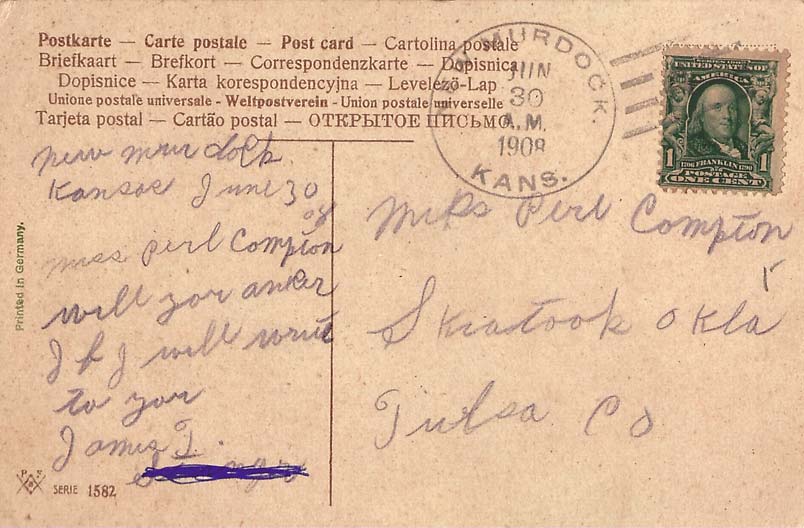 Postkarte — Carte postale — Post card — Cartolina postale
Briefkaart — Brefkort — Correspondenzkarte — Dopisnica
Dopisnice — Karta korespondencyjna — Levelező-Lap
Unione postale universale - Weltpostverein - Union postale universelle
Tarjeta postal — Cartão postal — ОТКРЫТОЕ ПИСЬМО
MURDOCK.
JUN
30
A.M.
1908
KANS.
SERIES 1902
UNITED STATES OF
AMERICA
1 1706 FRANKLIN 1790 1
POSTAGE
ONE CENT
new murdock
Kansas June 30
08
miss perl Compton
will yor anser
If I will write
to yor
James T.
Mirs Perl Compton
Skiatook Okla
Tulsa Co
Printed in Germany.
P. F.
SERIE 1582